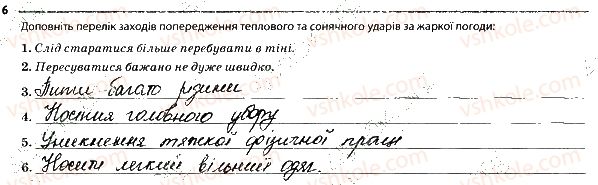 6
Доповніть перелік заходів попередження теплового та сонячного ударів за жаркої погоди:
1. Слід старатися більше перебувати в тіні.
2. Пересуватися бажано не дуже швидко.
3. Пити багато рідини
4. Носіння головного убору
5. Уникнення тяжкої фізичної праці
6. Носити легкий вільний одяг.
vshkole.com